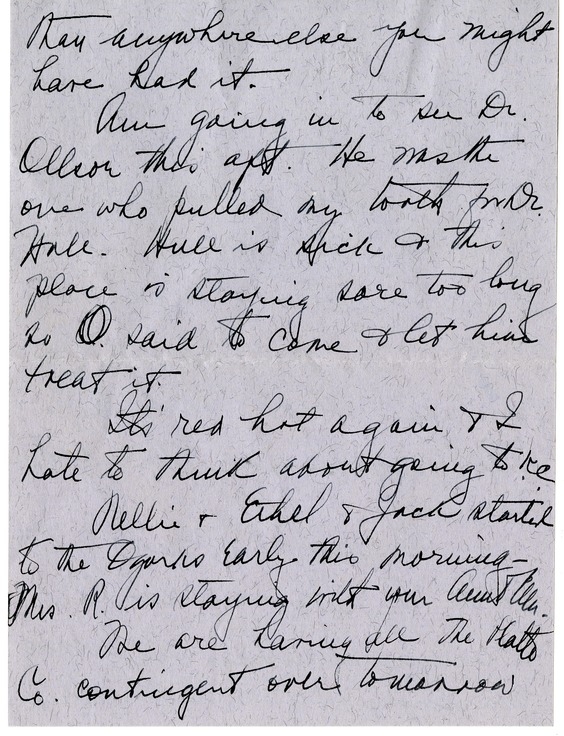 than anywhere else you might
have had it.
Am going in to see Dr.
Ollson this aft. He was the
one who pulled my tooth for Dr.
Hull. Hull is sick & this
place is staying sore too long
so O. said to come & let him
treat it.
It's red hot again & I
hate to think about going to K.C
Nellie & Ethel & Jack started
to the Ozarks early this morning—
Mrs. R. is staying with your Aunt Ella.
We are having all the Platte
Co. contingent over tomorrow